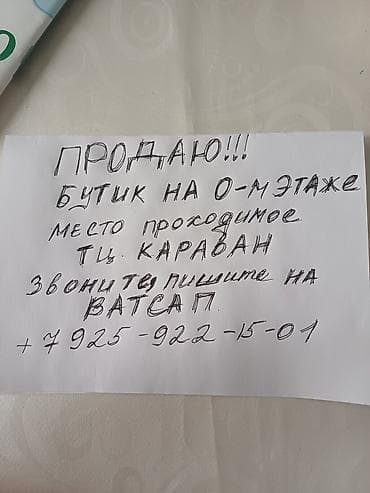 ПРОДАЮ!!!
БУТИК НА 0-М ЭТАЖЕ
МЕСТО ПРОХОДИМОЕ
ТЦ. КАРАВАН
ЗВОНИТЕ, ПИШИТЕ НА
ВАТСАП.
+7925-922-15-01